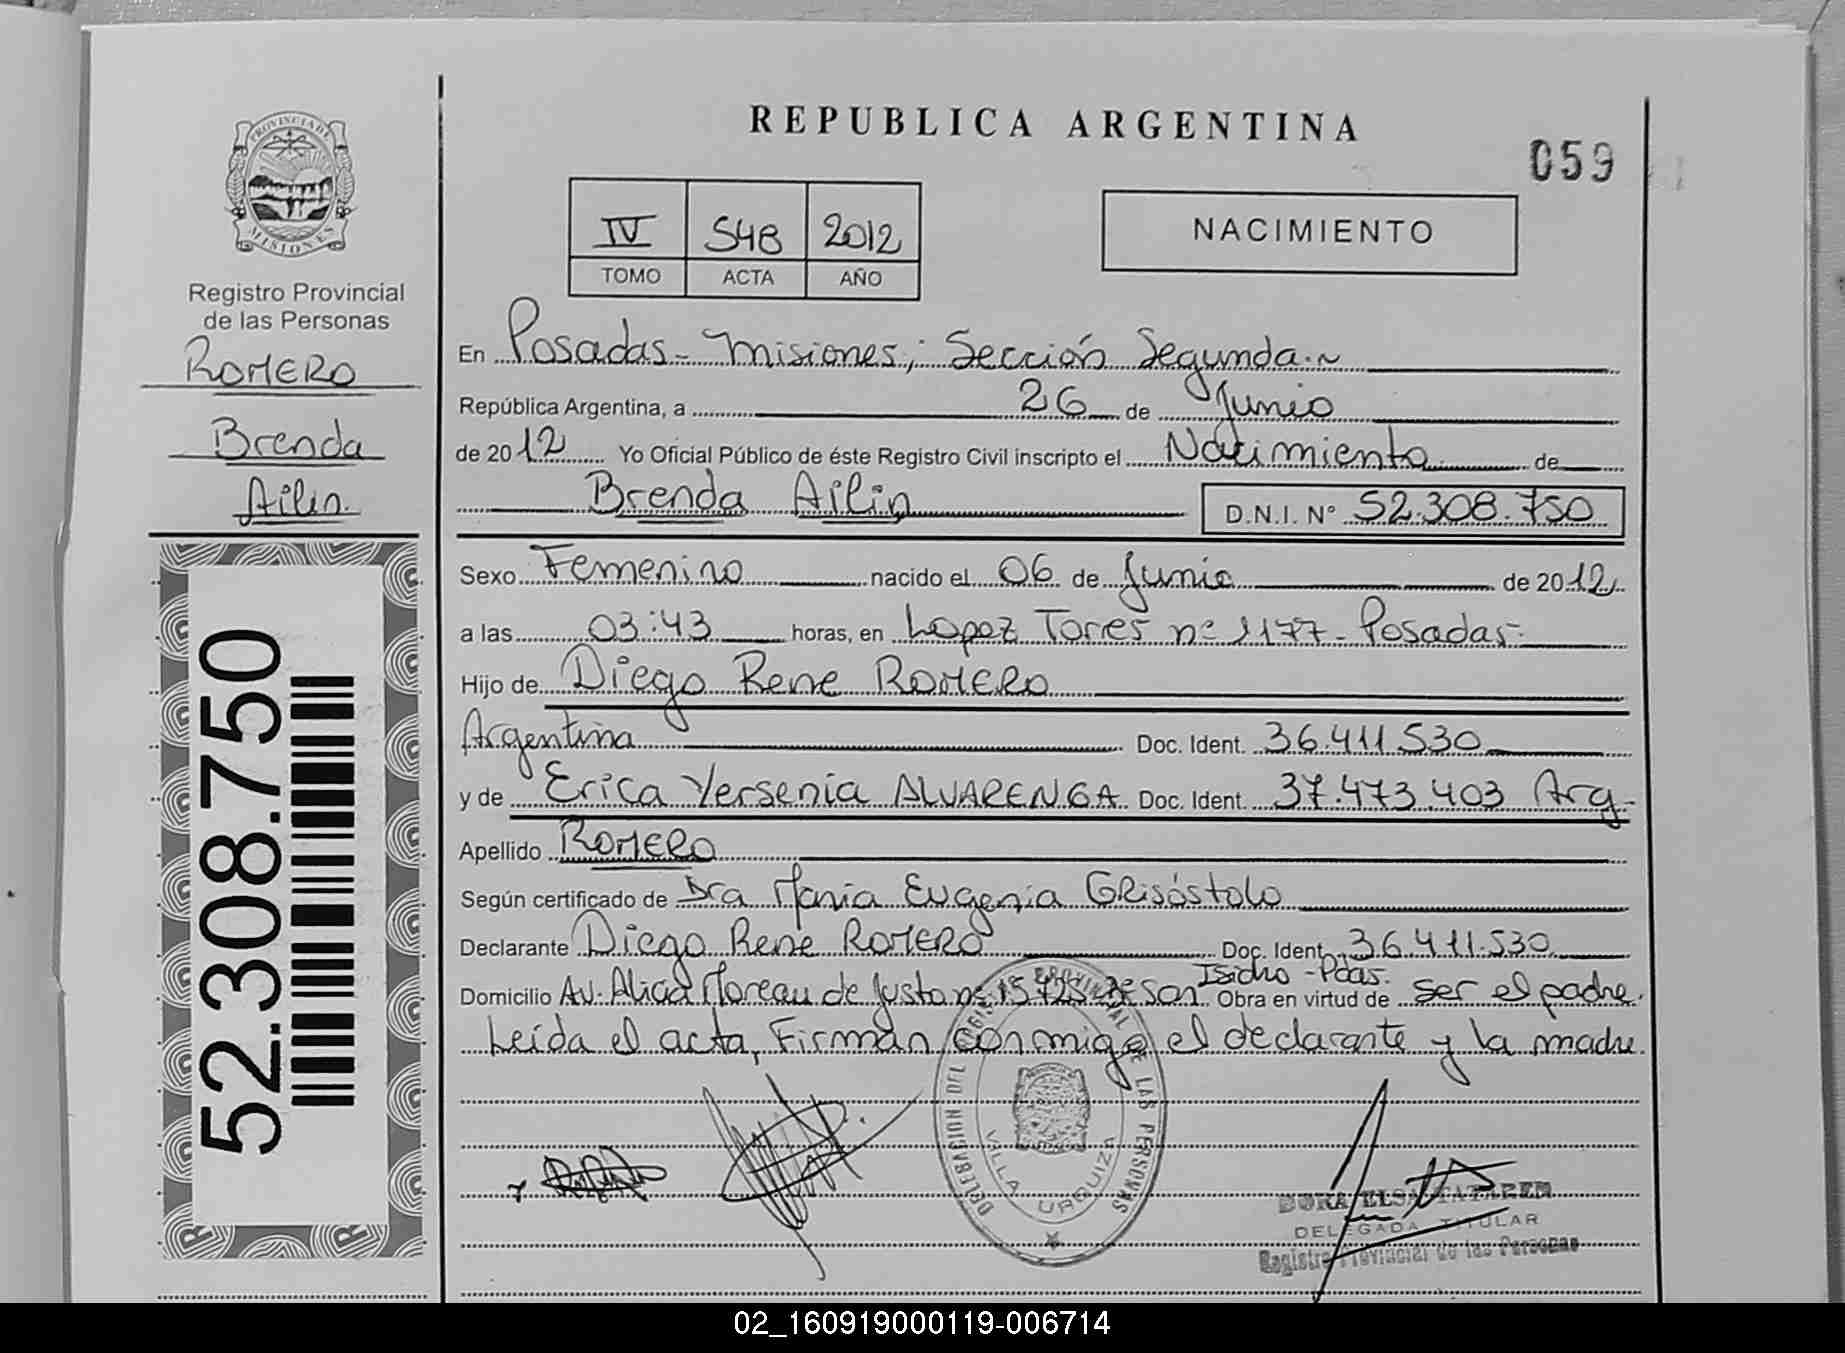 REPUBLICA ARGENTINA
059
PROVINCIA DE
MISIONES
Registro Provincial
de las Personas
ROMERO
Brenda
Ailin.
52.308.750
IV S48 2012
TOMO ACTA AÑO
NACIMIENTO
En Posadas - Misiones, Sección Segunda.~
República Argentina, a 26 de Junio
de 2012 Yo Oficial Público de éste Registro Civil inscripto el Nacimiento de
Brenda Ailin D.N.I. N° 52.308.750
Sexo Femenino nacido el 06 de Junio de 2012
a las 03:43 horas, en Lopez Torres n° 1177 - Posadas-
Hijo de Diego Rene ROMERO
Argentina Doc. Ident. 36.411.530
y de Erica Yersenia ALVARENGA Doc. Ident. 37.473.403 Arg-
Apellido ROMERO
Según certificado de Dra Maria Eugenia GRisóstolo
Declarante Diego Rene ROMERO Doc. Ident. 36.411.530
Isidro - Pdas.
Domicilio Av. Alicia Moreau de Justo n° San Obra en virtud de ser el padre.
Leída el acta, Firman conmigo el declarante y la madre.
DELEGACION DEL REGISTRO PROVINCIAL DE LAS PERSONAS
VILLA URQUIZA
DORA ELSA TATAREN
DELEGADA TITULAR
Registro Provincial de las Personas
02_160919000119-006714